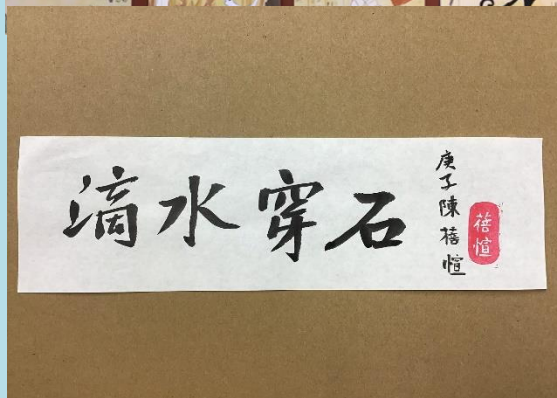 滴水穿石
庚子陳蓓愃
蓓愃